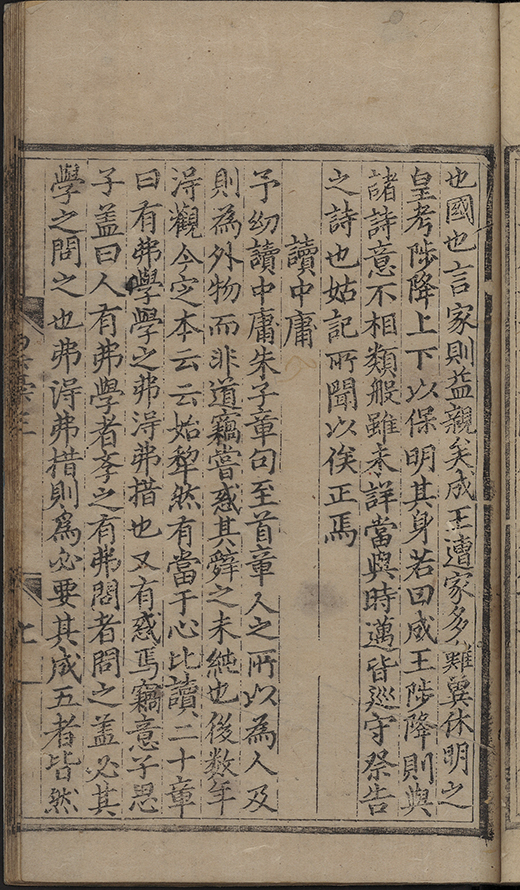 也國也言家則益親矣成王遭家多難冀休明之
皇考陟降上下以保明其身若曰成王陟降則與
諸詩意不相類般雖未詳當與時邁皆巡守祭告
之詩也姑記所聞以俟正焉
讀中庸
予幼讀中庸朱子章句至首章人之所以為人及
則為外物而非道竊嘗惑其辭之未純也後數年
淂觀今定本云云始犂然有當于心比讀二十章
曰有弗學學之弗淂弗措也又有惑焉竊意子思
子盖曰人有弗學者李之有弗問者問之盖必其
學之問之也弗淂弗措則為必要其成五者皆然
七